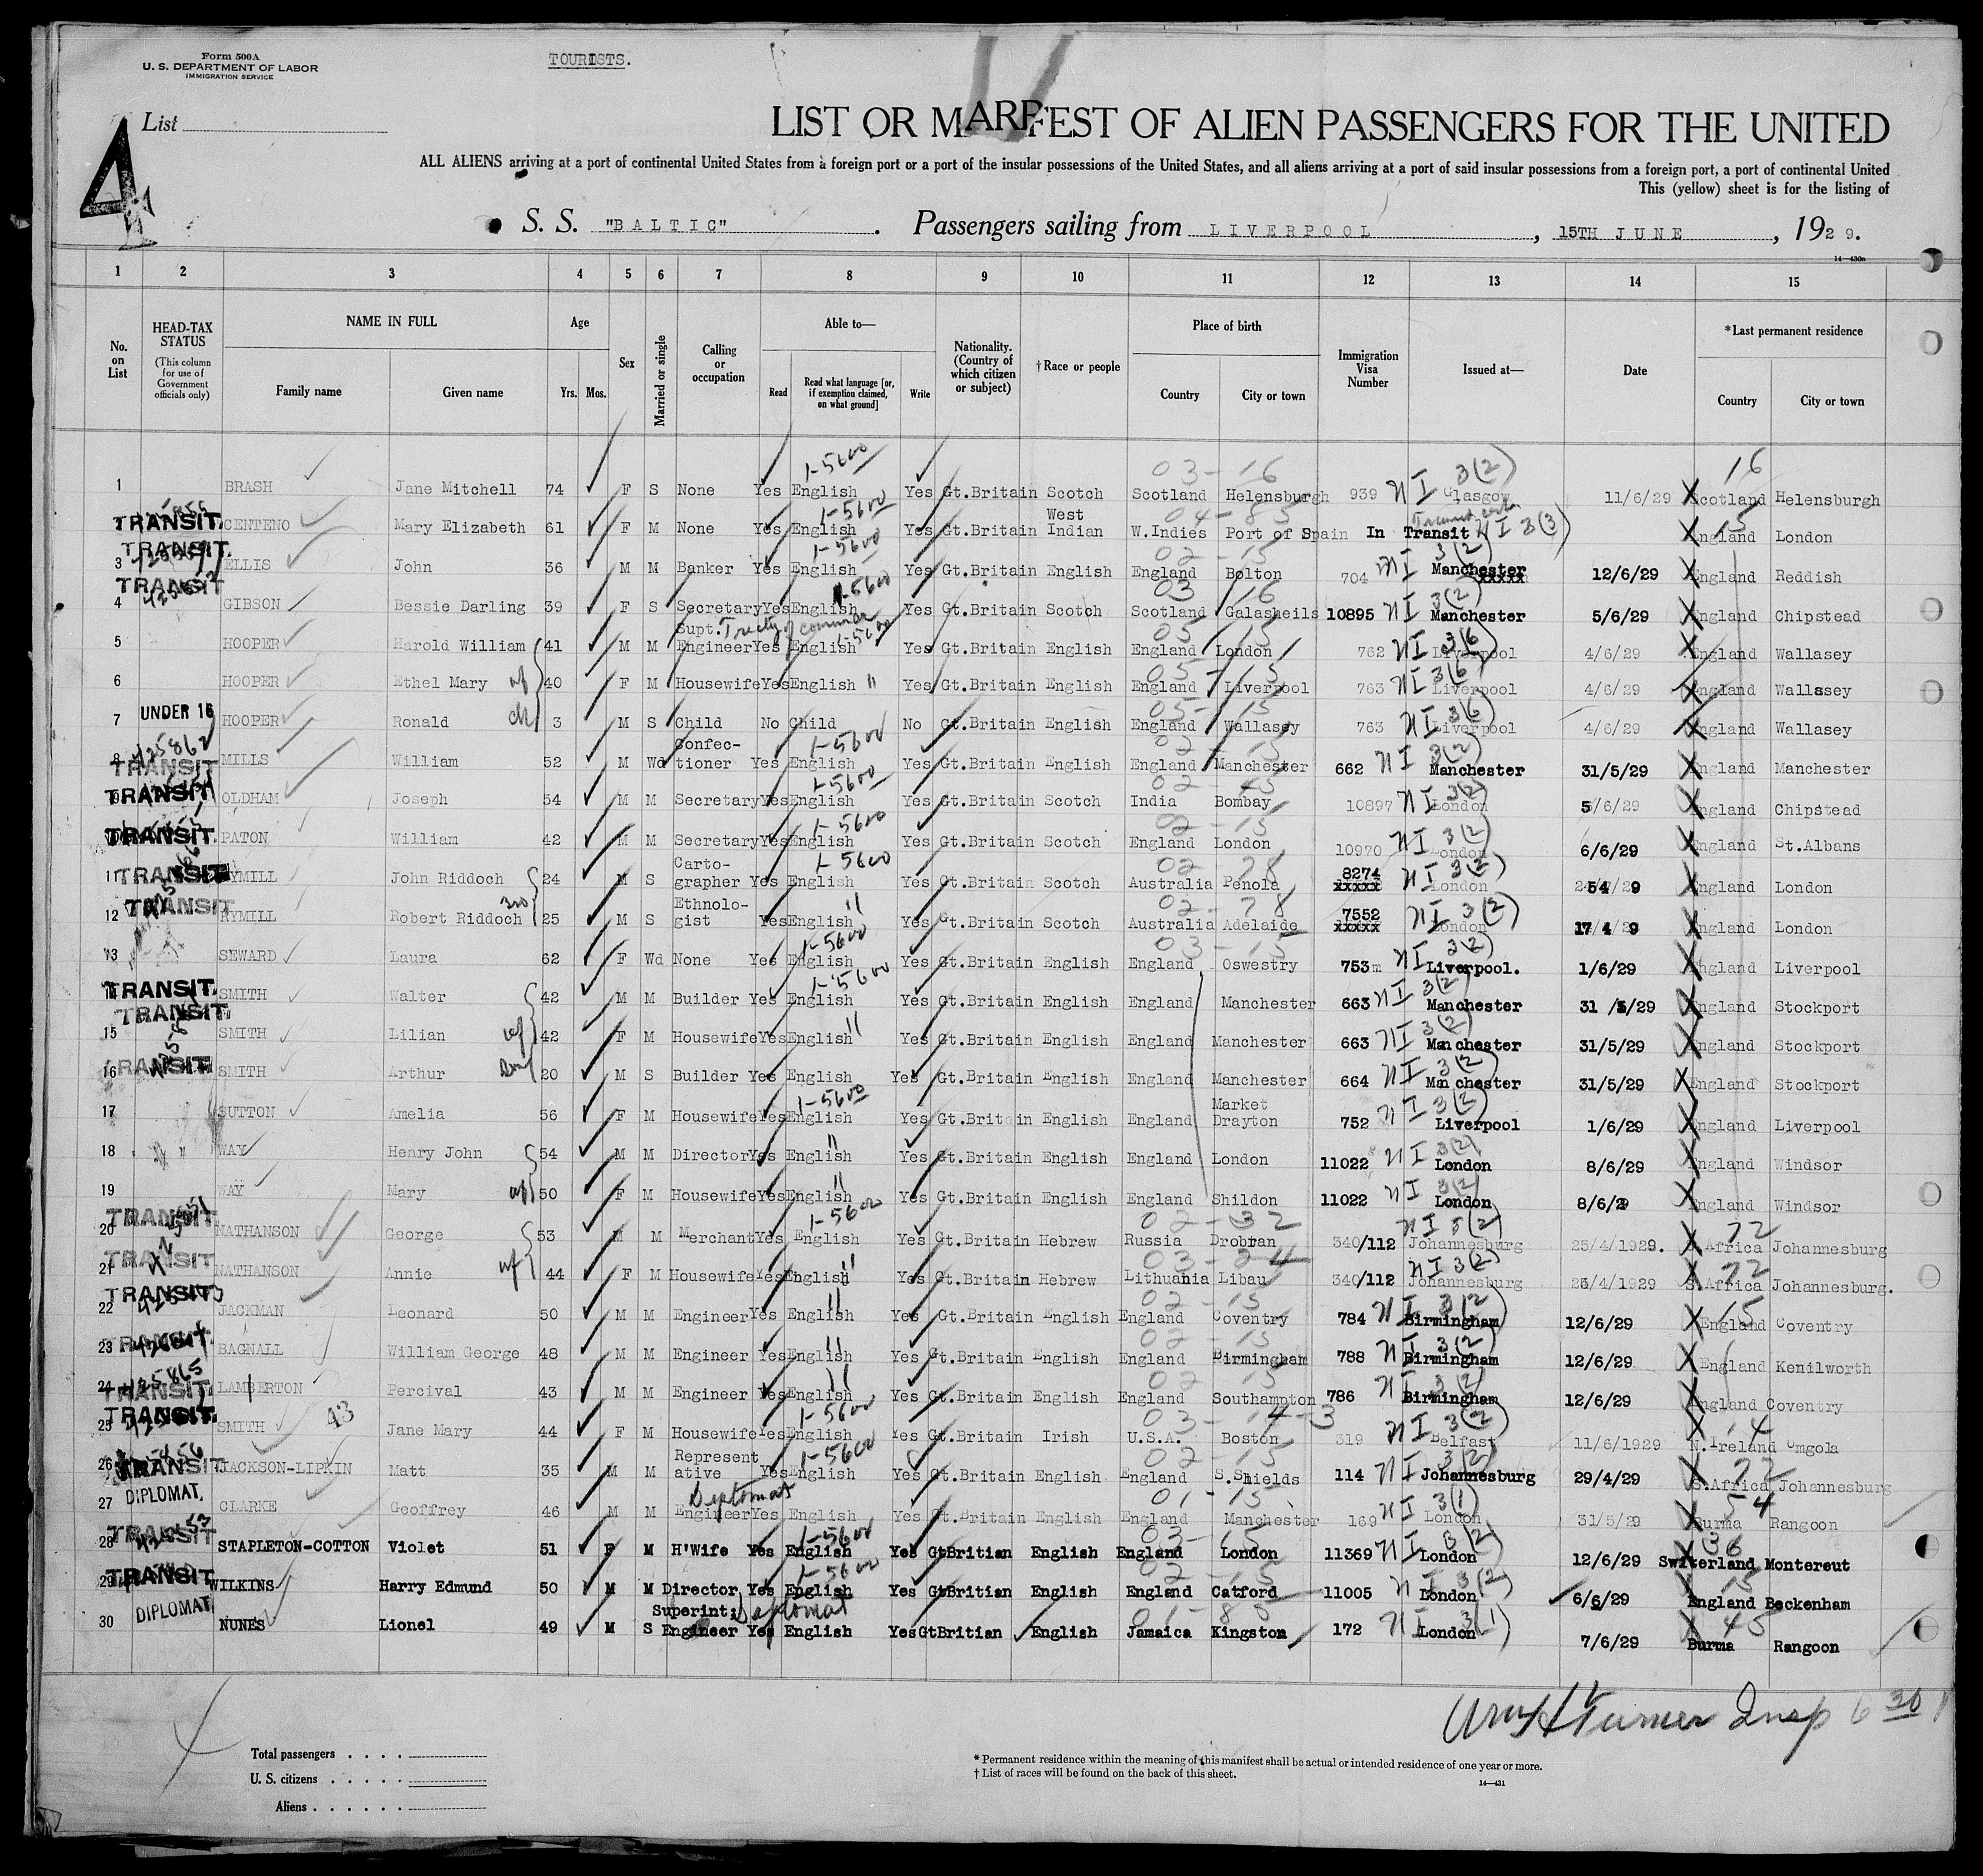 Form 500A
U. S. DEPARTMENT OF LABOR
IMMIGRATION SERVICE
TOURISTS.
4
List
LIST OR MANIFEST OF ALIEN PASSENGERS FOR THE UNITED
ALL ALIENS arriving at a port of continental United States from a foreign port or a port of the insular possessions of the United States, and all aliens arriving at a port of said insular possessions from a foreign port, a port of continental United
This (yellow) sheet is for the listing of
S. S. "BALTIC" . Passengers sailing from LIVERPOOL , 15TH JUNE , 1929.
14—430a
1 2 3 4 5 6 7 8 9 10 11 12 13 14 15
No. on List
HEAD-TAX STATUS (This column for use of Government officials only)
NAME IN FULL
Family name Given name
Age
Yrs. Mos.
Sex
Married or single
Calling or occupation
Able to—
Read Read what language [or, if exemption claimed, on what ground] Write
Nationality. (Country of which citizen or subject)
†Race or people
Place of birth
Country City or town
Immigration Visa Number
Issued at—
Date
*Last permanent residence
Country City or town
1 BRASH Jane Mitchell 74 F S None Yes English 1-5600 Yes Gt.Britain Scotch Scotland Helensburgh 03-16 939 NI 3(2) Glasgow 11/6/29 Scotland Helensburgh 16
TRANSIT CENTENO Mary Elizabeth 61 F M None Yes English 1-5600 Yes Gt.Britain West Indian W.Indies Port of Spain 04-85 In Transit NI 3(3) England London 15
3 TRANSIT ELLIS John 36 M M Banker Yes English 1-5600 Yes Gt.Britain English England Bolton 02-15 704 NI 3(2) Manchester 12/6/29 England Reddish
4 TRANSIT GIBSON Bessie Darling 39 F S Secretary Yes English 1-5600 Yes Gt.Britain Scotch Scotland Galasheils 03 16 10895 NI 3(2) Manchester 5/6/29 England Chipstead
5 HOOPER Harold William 41 M M Supt. Engineer Treaty of commerce Yes English 1-5600 Yes Gt.Britain English England London 05 15 762 NI 3(6) Liverpool 4/6/29 England Wallasey
6 HOOPER Ethel Mary wf 40 F M Housewife Yes English " Yes Gt.Britain English England Liverpool 05-15 763 NI 3(6) Liverpool 4/6/29 England Wallasey
7 UNDER 16 HOOPER Ronald ch 3 M S Child No Child No Gt.Britain English England Wallasey 05-15 763 NI 3(6) Liverpool 4/6/29 England Wallasey
8 425862 TRANSIT MILLS William 52 M Wd Confectioner Yes English 1-5600 Yes Gt.Britain English England Manchester 02-15 662 NI 3(2) Manchester 31/5/29 England Manchester
TRANSIT OLDHAM Joseph 54 M M Secretary Yes English 1-5600 Yes Gt.Britain Scotch India Bombay 10897 NI 3(2) London 5/6/29 England Chipstead
TRANSIT PATON William 42 M M Secretary Yes English 1-5600 Yes Gt.Britain Scotch England London 02-15 10970 NI 3(2) London 6/6/29 England St.Albans
11 TRANSIT RYMILL John Riddoch 24 M S Cartographer Yes English 1-5600 Yes Gt.Britain Scotch Australia Penola 02-78 8274 xxxxx NI 3(2) London England London
12 TRANSIT RYMILL Robert Riddoch 25 M S Ethnologist Yes English " Yes Gt.Britain Scotch Australia Adelaide 02-78 7552 xxxxx NI 3(2) London 17/4/29 England London
13 SEWARD Laura 62 F Wd None Yes English 1-5600 Yes Gt.Britain English England Oswestry 03-15 753 NI 3(2) Liverpool. 1/6/29 England Liverpool
TRANSIT SMITH Walter 42 M M Builder Yes English 1-5600 Yes Gt.Britain English England Manchester 663 NI 3(2) Manchester 31/5/29 England Stockport
15 TRANSIT SMITH Lilian wf 42 F M Housewife Yes English " Yes Gt.Britain English England Manchester 663 NI 3(2) Manchester 31/5/29 England Stockport
16 TRANSIT SMITH Arthur son 20 M S Builder Yes English Yes Gt.Britain English England Manchester 664 NI 3(2) Manchester 31/5/29 England Stockport
17 SUTTON Amelia 56 F M Housewife Yes English 1-5600 Yes Gt.Britain English England Market Drayton 752 NI 3(2) Liverpool 1/6/29 England Liverpool
18 WAY Henry John 54 M M Director Yes English " Yes Gt.Britain English England London 11022 NI 3(2) London 8/6/29 England Windsor
19 WAY Mary wf 50 F M Housewife Yes English " Yes Gt.Britain English England Shildon 11022 NI 3(2) London 8/6/29 England Windsor
20 TRANSIT NATHANSON George 53 M M Merchant Yes English 1-5600 Yes Gt.Britain Hebrew Russia Drobian 02-32 340/112 NI 3(2) Johannesburg 25/4/1929. S.Africa Johannesburg 72
21 TRANSIT NATHANSON Annie wf 44 F M Housewife Yes English " Yes Gt.Britain Hebrew Lithuania Libau 03-24 340/112 NI 3(2) Johannesburg 25/4/1929 S.Africa Johannesburg. 72
22 TRANSIT JACKMAN Leonard 50 M M Engineer Yes English " Yes Gt.Britain English England Coventry 02-15 784 NI 3(2) Birmingham 12/6/29 England Coventry 15
23 TRANSIT BAGNALL William George 48 M M Engineer Yes English " Yes Gt.Britain English England Birmingham 02-15 788 NI 3(2) Birmingham 12/6/29 England Kenilworth
24 425865 TRANSIT LAMBERTON Percival 43 M M Engineer Yes English " Yes Gt.Britain English England Southampton 02 15 786 NI 3(2) Birmingham 12/6/29 England Coventry
25 TRANSIT SMITH 43 Jane Mary 44 F M Housewife Yes English 1-5600 Yes Gt.Britain Irish U.S.A. Boston 03-14-3 319 NI 3(2) Belfast 11/6/1929 N.Ireland Omgola 14
26 TRANSIT JACKSON-LIPKIN Matt 35 M M Representative Yes English 1-5600 Yes Gt.Britain English England S.Shields 02-15 114 NI 3(2) Johannesburg 29/4/29 S.Africa Johannesburg 72
27 DIPLOMAT, CLARKE Geoffrey 46 M M Engineer Diplomat Yes English Yes Gt.Britain English England Manchester 01-15 169 NI 3(1) London 31/5/29 Burma Rangoon 54
28 TRANSIT STAPLETON-COTTON Violet 51 F M H'Wife Yes English 1-5600 Yes GtBritian English England London 03-15 11369 NI 3(2) London 12/6/29 Switerland Montereut 36
29 TRANSIT WILKINS Harry Edmund 50 M M Director Yes English 1-5600 Yes GtBritian English England Catford 02-15 11005 NI 3(2) London 6/6/29 England Beckenham 15
30 DIPLOMAT NUNES Lionel 49 M S Superint: Engineer Diplomat Yes English Yes GtBritian English Jamaica Kingston 01-85 172 NI 3(1) London 7/6/29 Burma Rangoon 45
Wm H Turner Insp 6 30
Total passengers . . . .
U. S. citizens . . . . .
Aliens . . . . . .
* Permanent residence within the meaning of this manifest shall be actual or intended residence of one year or more.
† List of races will be found on the back of this sheet.
14—431